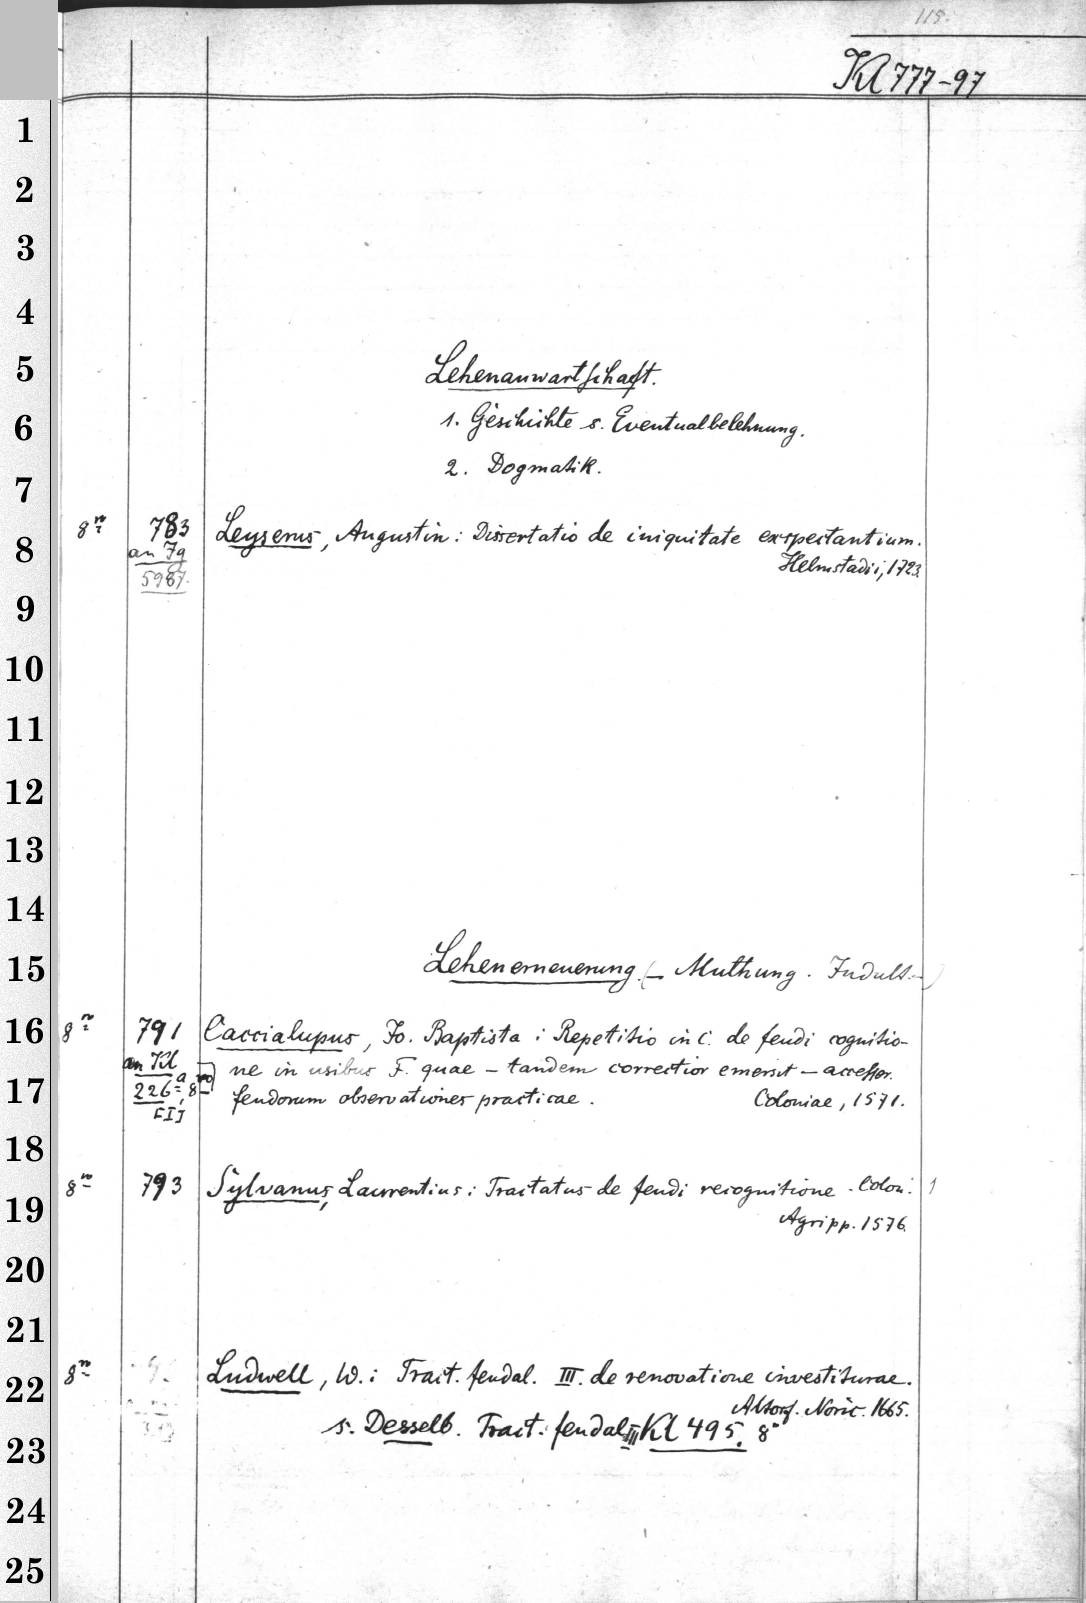 115.
Kl 777-97
Lehenanwartschaft.
1. Geschichte s. Eventualbelehnung.
2. Dogmatik.
8º 783 Leyserus, Augustin: Dissertatio de iniquitate exspectantium.
an Jg Helmstadii, 1723.
5987.
Lehenerneuerung (– Muthung. Indult. –)
8º 791 Caccialupus, Jo. Baptista: Repetitio in c. de feudi cognitio-
an Kl ne in usibus F. quae – tandem correctior emersit – accessor.
226ª, 8vo feudorum observationes practicae. Coloniae, 1571.
[I]
8º 793 Sylvanus, Laurentius: Tractatus de feudi recognitione. Colon. 1
Agripp. 1576.
8º Ludwell, W.: Tract. feudal. III. de renovatione investiturae.
Altorf. Noric. 1665.
s. Desselb. Tract. feudal III Kl 495. 8º
1
2
3
4
5
6
7
8
9
10
11
12
13
14
15
16
17
18
19
20
21
22
23
24
25